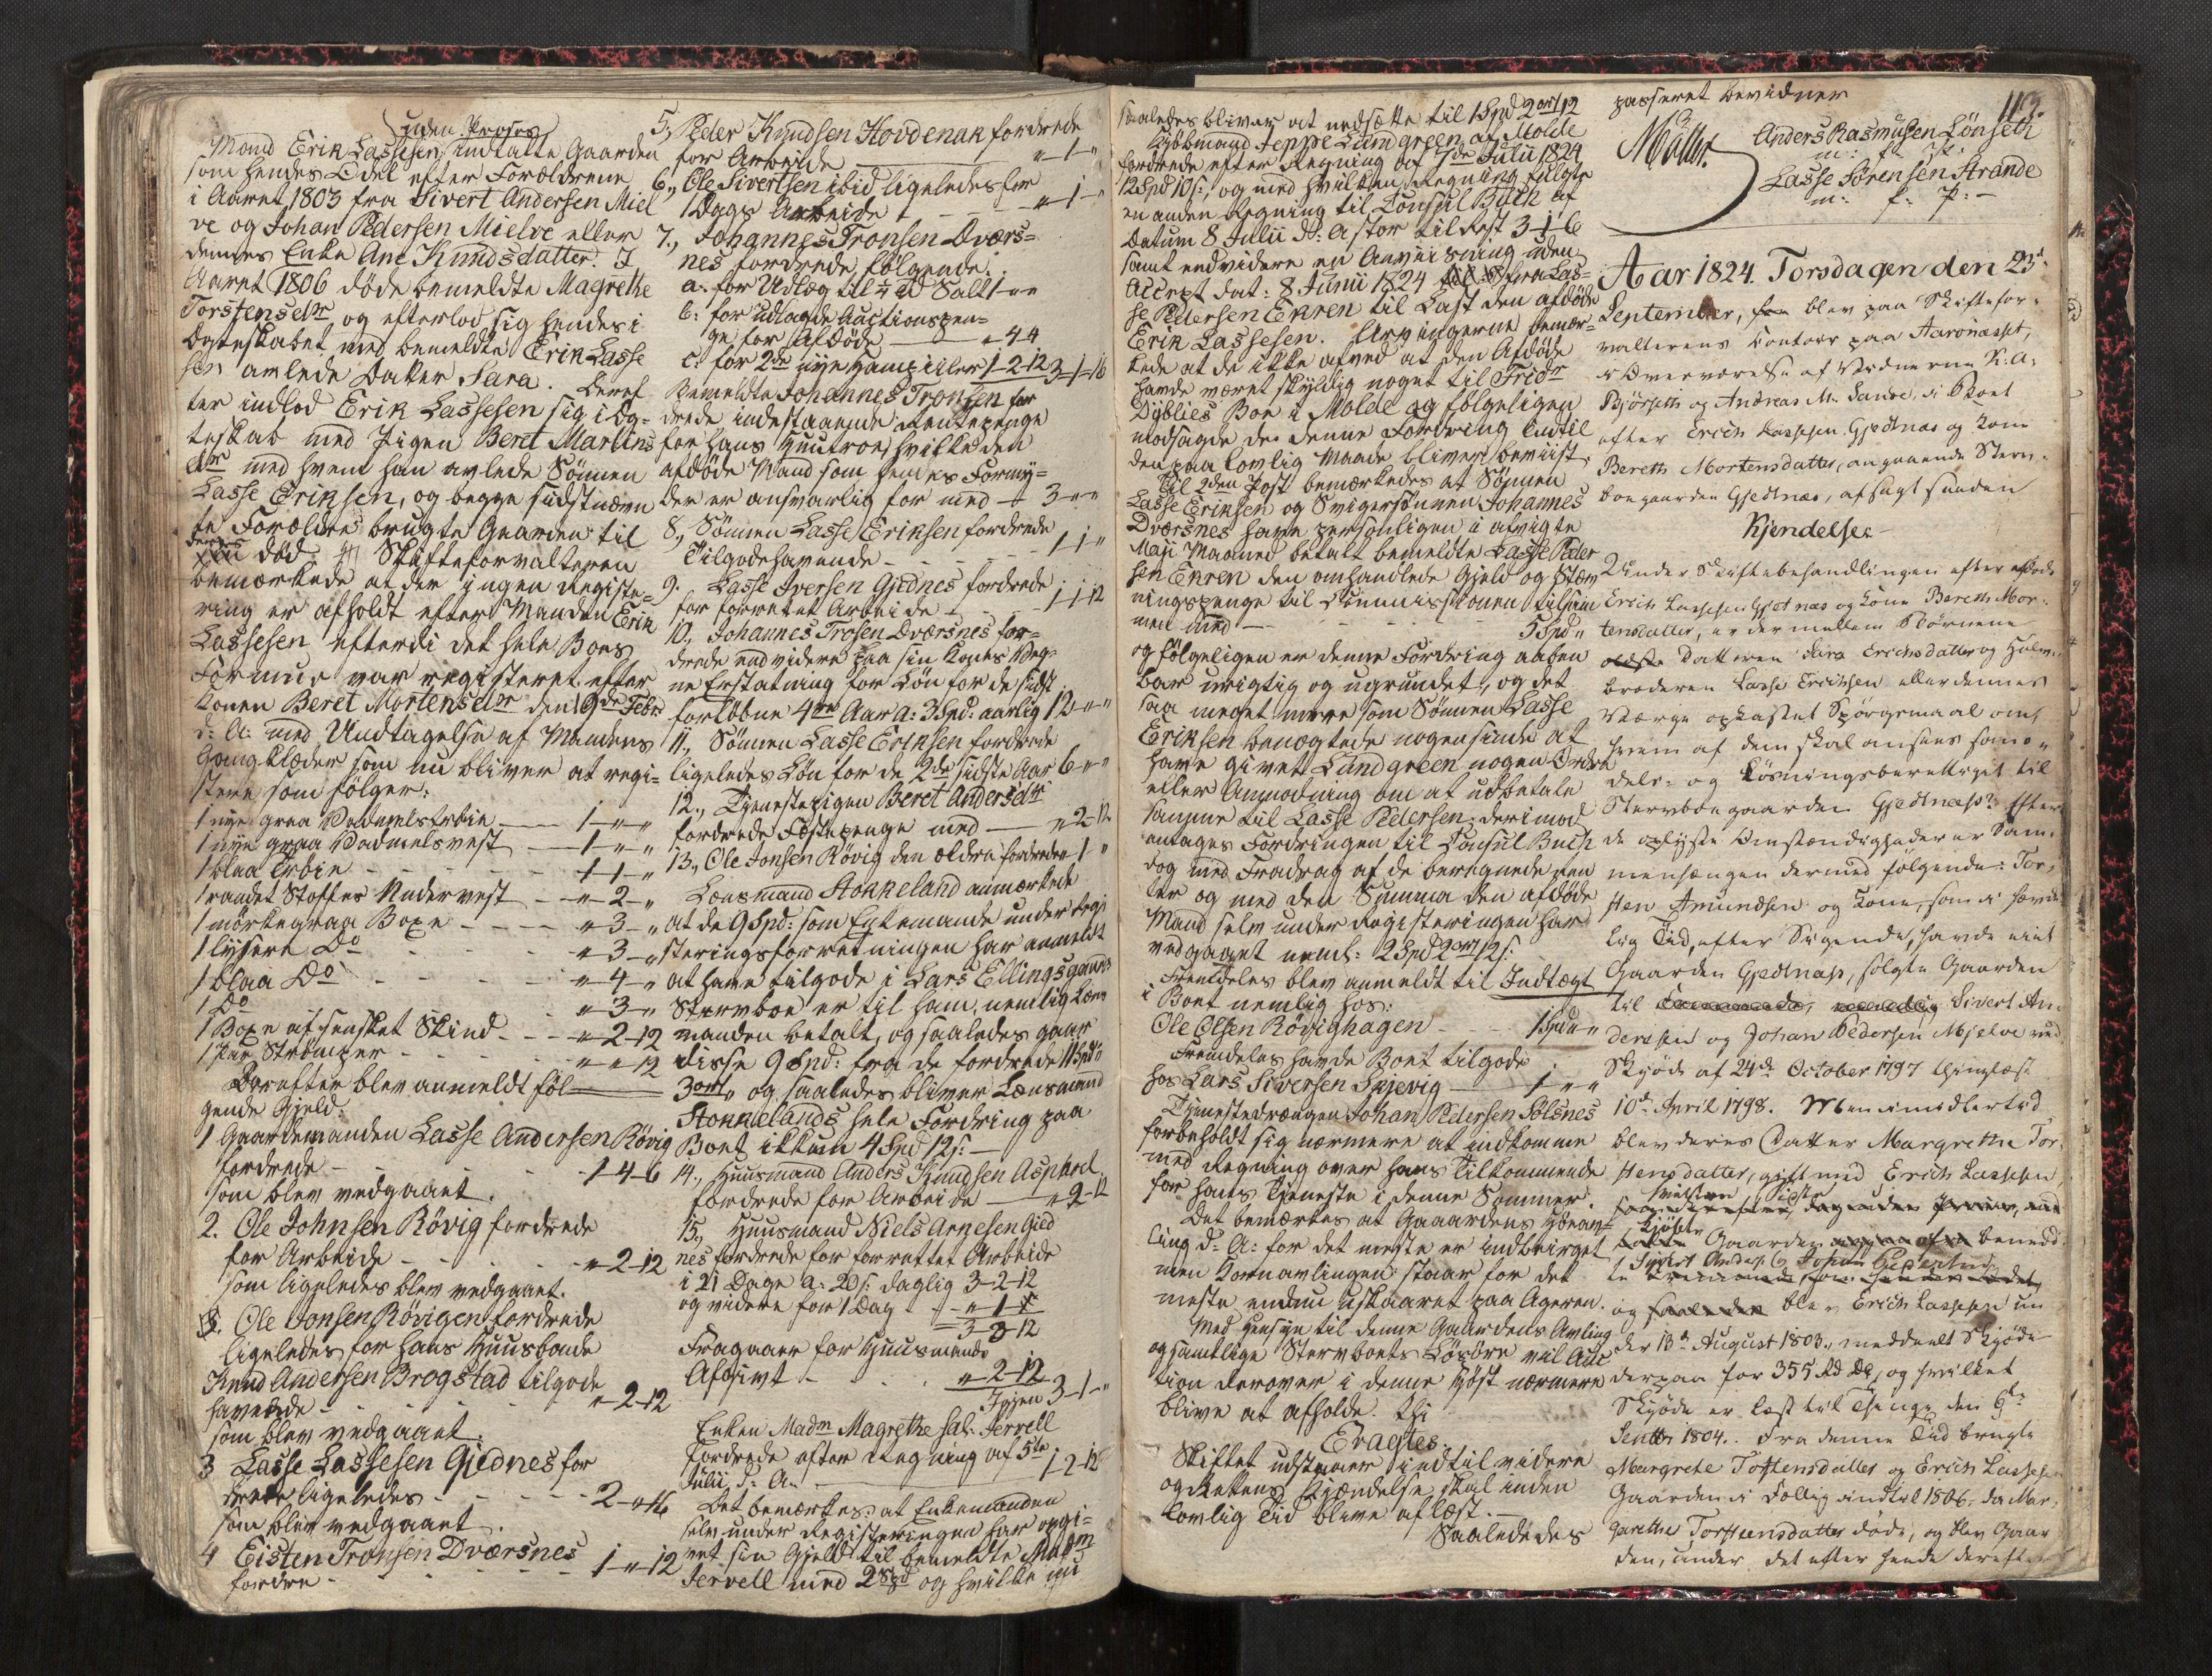 uden Proses
Mand Erik Lassesen indtalte Gaarden
som hendes Odel efter Forældrene
i Aaret 1803 fra Sivert Andersen Miel
ve og Johan Pedersen Mielve eller
dennes Enke Ane Knudsdatter. I
Aaret 1806 døde bemeldte Magrethe
Torstensdtr og efterlod sig hendes i
Ægteskabet med bemeldte Erik Lasse
sen avlede Datter Sara. Deref
ter indlod Erik Lassesen sig i Æg-
teskab med Pigen Beret Martins
dtr med hvem han avlede Sönnen
Lasse Eriksen, og begge sidstnævn
te Forældre brugte Gaarden til
deres
død. Skifteforvalteren
bemærkede at der ingen Registe-
ring er afholdt efter Manden Erik
Lassesen efterdi det hele Boes
Formue var registeret efter
Konen Beret Mortensdtr den 19de Febr:
d: A: med Undtagelse af Mandens
Gangklæder som nu bliver at regi-
stere som følger:
1 nye graa Vadmelströie 1 - " - "
1 nye graa Vadmelsvest 1 - " - "
1 blaa Tröie 1 - 1 - "
1 raadet Stoffes Undervest " - 2 - "
1 mörkegraa Boxe " - 3 - "
1 lysere Do " - 3 - "
1 blaa Do " - 4 - "
1 Do " - 3 - "
1 Boxe af sensket Skind " - 2 - 12
1 Par Strömper " - " - 12
Derefter blev anmeldt föl
gende Gjeld:
1 Gaardemanden Lasse Andersen Rövig
fordrede 1-4-6
som blev vedgaaet.
2. Ole Johnsen Rövig fordrede
for Arbeide " - 2-12
som ligeledes blev vedgaaet.
Ole Jonsen Rövigen fordrede
ligeledes for hans Huusbonde
Knud Andersen Brogstad tilgode
havende " - 2-12
som blev vedgaaet.
3 Lasse Lassesen Gjednes for
drede ligeledes 2 - " 16
som blev vedgaaet.
4 Eisten Tronsen Dværsnes
fordre 1 - " - 12
5, Peder Knudsen Hovdenak fordrede
for Arbeide " - 1 - "
6., Ole Sivertsen ibid ligeledes for
1 Dags Arbeide " - 1 - "
7., Johannes Tronsen Dværs-
nes fordrede følgende:
a: for Udlæg til Salt 1 - " "
b: for udlagde Auctionspen-
ge for Afdøde " 44
c: for 2de nye Hampiller 1-2-12 3-1-16
Bemeldte Johannes Tronsen for
drede indestaaende Rentepenge
for hans Huustroe, hvilke den
afdöde Mand som hendes Formy-
der er ansvarlig for med 3 - " "
8., Sönnen Lasse Eriksen fordrede
Tilgodehavende 1-1-"
9. Lasse Iversen Gjednes fordrede
for forrettet Arbeide 1-1-12
10., Johannes Trosen Dværsnes for-
drede endvidere paa sin Kones Veg-
ne Erstatning for Lön for de sidst
forløbne 4re Aar a: 3 Spd: aarlig 12 - " "
11., Sönnen Lasse Eriksen fordrede
ligeledes Lön for de 2de sidste Aar 6 - " "
12., Tjenestepigen Beret Andersdtr
fordrede Festepenge med " 2-12
13., Ole Jonsen Rövig den ældre fordrede 1 "
Lensmand Stokkeland anmærkede
at de 9 Spd: som Enkemande under Regi
steringsforretningen har anmeldt
at have tilgode i Lars Ellingsgaards
Stervboe er til ham, nemlig Lens
manden betalt, og saaledes gaar
disse 9 Spd: fra de fordrede 11 Spd
3 ort og saaledes bliver Lensmand
Stokkelands hele Fordring paa
Boet ikkun 4 Spd 12 s:
14., Huusmand Anders Knudsen Asphoel
fordrede for Arbeide " 2-12
15., Huusmand Niels Arnesen Gied
nes fordrede for forrettet Arbeide
i 21 Dage a: 20 s: daglig 3-2-12
og videre for 1 Dag " - 1
3-3-12
Fragaaer for Huusmands
Afgivt " 2-12
Igjen 3-1-"
Enken Madm Magrethe sal: Jervell
fordrede efter Regning af 5te
Julii d: A: 1-2-12
Det bemærkes at Enkemanden
selv under Registeringen har opgi-
vet sin Gjeld til bemeldte Madm
Jervell med 2 Spd og hvilke nu
saaledes bliver at nedsætte til 1 Spd 2 ort 12
Kjöbmand Jeppe Lundgreen af Molde
fordrede efter Regning af 7de Julii 1824
12 Spd 10 s:, og med hvilken Regning fulgte
en anden Regning til Consul Buch af
Datum 8 Julii d: A stor til Rest 3-1-6
samt endvidere en Anviisning uden
Accept dat: 8 Junii 1824 fra Las-
se Pedersen Enren til Last den afdöde
Erik Lassesen. Arvingerne bemær-
kede at de ikke veed at den Afdöde
havde været skyldig noget til Fridr
Dyblies Boe i Molde og følgeligen
modsagde de denne Fordring indtil
den paa lovlig Maade bliver beviist.
Til 2den Post bemærkedes at Sönnen
Lasse Eriksen og Svigersönnen Johannes
Dværsnes have personligen i afvigte
Maji Maaned betalt bemeldte Lasse Peder
sen Enren den omhandlede Gjeld og Stæv
ningspenge til Commissionen tilsam
men med 5 Spd "
og følgeligen er denne Fordring aaben
bar urigtig og ugrundet, og det
saa meget mere som Sönnen Lasse
Eriksen benægtede nogensinde at
have givet Lundgreen nogen Ordre
eller Anmodning om at udbetale
samme til Lasse Pedersen; derimod
antages Fordringen til Consul Buch
dog med Fradrag af de beregnede Ren
ter og med den Summa den afdöde
Mand selv under Registeringen har
vedgaaet neml: 2 Spd 2 ort 12 s:
Fremdeles blev anmeldt til Indtægt
i Boet nemlig hos:
Ole Olsen Rövighagen 1 Spd " "
Fremdeles havde Boet tilgode
hos Lars Siversen Skjevig 1 " "
Tjenestedrængen Johan Pedersen Sölsnes
forbeholdt sig nærmere at indkomme
med Regning over hans Tilkommende
for hans Tjeneste i denne Sommer.
Det bemærkes at Gaaardens Höeav-
ling d: A: for det meste er indbirget
men Kornavlingen staar for det
meste endnu uskaaret paa Ageren.
Med Hensyn til denne Gaardens Avling
og samtlige Stervboets Lösöre vil Auc
tion derover i denne Höst nærmere
blive at afholde. Thi
Eragtes
Skiftet udstaaer indtil videre
og Rettens Kjendelse skal inden
lovlig Tid blive aflæst.
Saaledeles
passeret bevidner
113.
Müller.
Anders Rasmusen Lönseth
m: f: P:
Lasse Sörensen Strande
m: f: P: -
Aar 1824. Torsdagen den 23d
September, blev paa Skiftefor-
valterens Contoir paa Aarönæsset,
i Overværelse af Vidnerne K: A:
Bjørseth og Andreas M. Sande, i Boet
efter Erich Lasssen Gjednæs og Kone
Bereth Mortensdatter, angaaende Sterv-
boegaarden Gjednæs, afsagt saadan
Kjendelse
Under Skiftebehandlingen efter afdøde
Erich Lassesen Gjednæs og Kone Bereth Mor-
tensdatter, er der mellem Börnene
Datteren Sara Erichsdatter og Halv-
broderen Lasse Erichsen eller dennes
Værge opkastet Spörgsmaal om,
hvem af dem skal ansees som o-
dels- og Lösningsberettiget til
Stervboegaarden Gjednæs? Efter
de oplyste Omstændigheder er Sam-
menhængen dermed følgende: Tor-
sten Amundsen og Kone, som i hævde
lig Tid, efter Sigende, havde eiet
Gaarden Gjednæs, solgte Gaarden
til Sivert An-
dersen og Johan Pedersen Mjelve ved
Skjöde af 24de October 1797 thinglæst
10de April 1798. Men imidlertid
blev deres Datter Margrethe Tor-
stensdatter, gift med Erich Lassen,
Gaarden bemeld
og blev Erich Lassen un
der 13de August 1803, meddeelt Skjöde
derpaa for 355 Rd, og hvilket
Skjöde er læst til Thinge den 9de
1804. Fra denne Tid brugte
Margrete Tostensdatter og Erich Lassesen
Gaarden i Fællig indtil 1806, da Mar-
garethe Torstensdatter døde, og blev Gaar
den, under det efter hende derefter